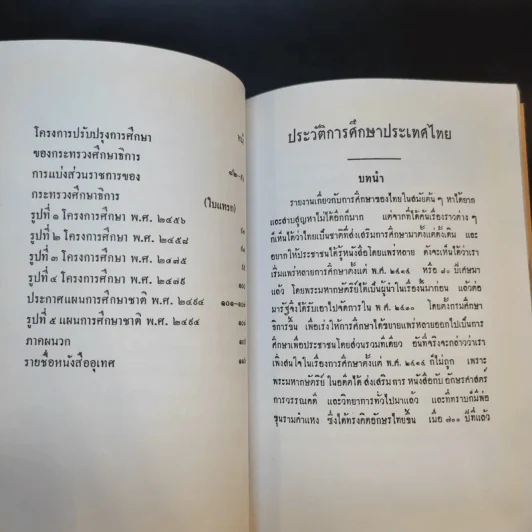 โครงการปรับปรุงการศึกษา
ของกระทรวงศึกษาธิการ
การแบ่งส่วนราชการของ
กระทรวงศึกษาธิการ (ใบแทรก)
รูปที่ ๑ โครงการศึกษา พ.ศ. ๒๔๕๖
รูปที่ ๒ โครงการศึกษา พ.ศ. ๒๔๕๘
รูปที่ ๓ โครงการศึกษา พ.ศ. ๒๔๗๕
รูปที่ ๔ โครงการศึกษา พ.ศ. ๒๔๗๙
ประกาศแผนการศึกษาชาติ พ.ศ. ๒๔๙๔
รูปที่ ๕ แผนการศึกษาชาติ พ.ศ. ๒๔๙๔
ภาคผนวก
รายชื่อหนังสืออุเทศ
ประวัติการศึกษาประเทศไทย
บทนำ
รายงานเกี่ยวกับการศึกษาของไทยในสมัยต้น ๆ หาได้ยาก
และสาบสูญหาไม่ได้อีกก็มาก แต่จากที่ได้ค้นเรื่องราวต่าง ๆ
ก็เห็นได้ว่าไทยเป็นชาติที่ส่งเสริมการศึกษามาตั้งแต่ดั้งเดิม และ
อยากให้ประชาชนได้รู้หนังสือโดยแพร่หลาย ดังจะเห็นได้ว่าเรา
เริ่มแพร่หลายการศึกษาตั้งแต่ พ.ศ. ๒๔๑๔ หรือ ๘๐ ปีเศษมา
แล้ว โดยพระมหากษัตริย์ได้เป็นผู้นำในเรื่องนี้มาก่อน แล้วต่อ
มารัฐจึงได้รับเอาไปจัดการใน พ.ศ. ๒๔๓๐ โดยตั้งกรมศึกษา
ธิการขึ้น เพื่อเร่งให้การศึกษาได้ขยายแพร่หลายออกไปเป็นการ
ศึกษาเพื่อประชาชนโดยส่วนรวมทีเดียว อันที่จริงจะกล่าวว่าเรา
เพิ่งสนใจในเรื่องการศึกษาตั้งแต่ พ.ศ. ๒๔๑๔ ก็ไม่ถูก เพราะ
พระมหากษัตริย์ ในอดีตได้ ส่งเสริมการ หนังสือกับ อักษรศาสตร์
การวรรณคดี และวิทยาการทั่วไปมาแล้ว และที่ทราบก็มีพ่อ
ขุนรามคำแหง ซึ่งได้ทรงคิดอักษรไทยขึ้น เมื่อ ๗๐๐ ปีที่แล้ว